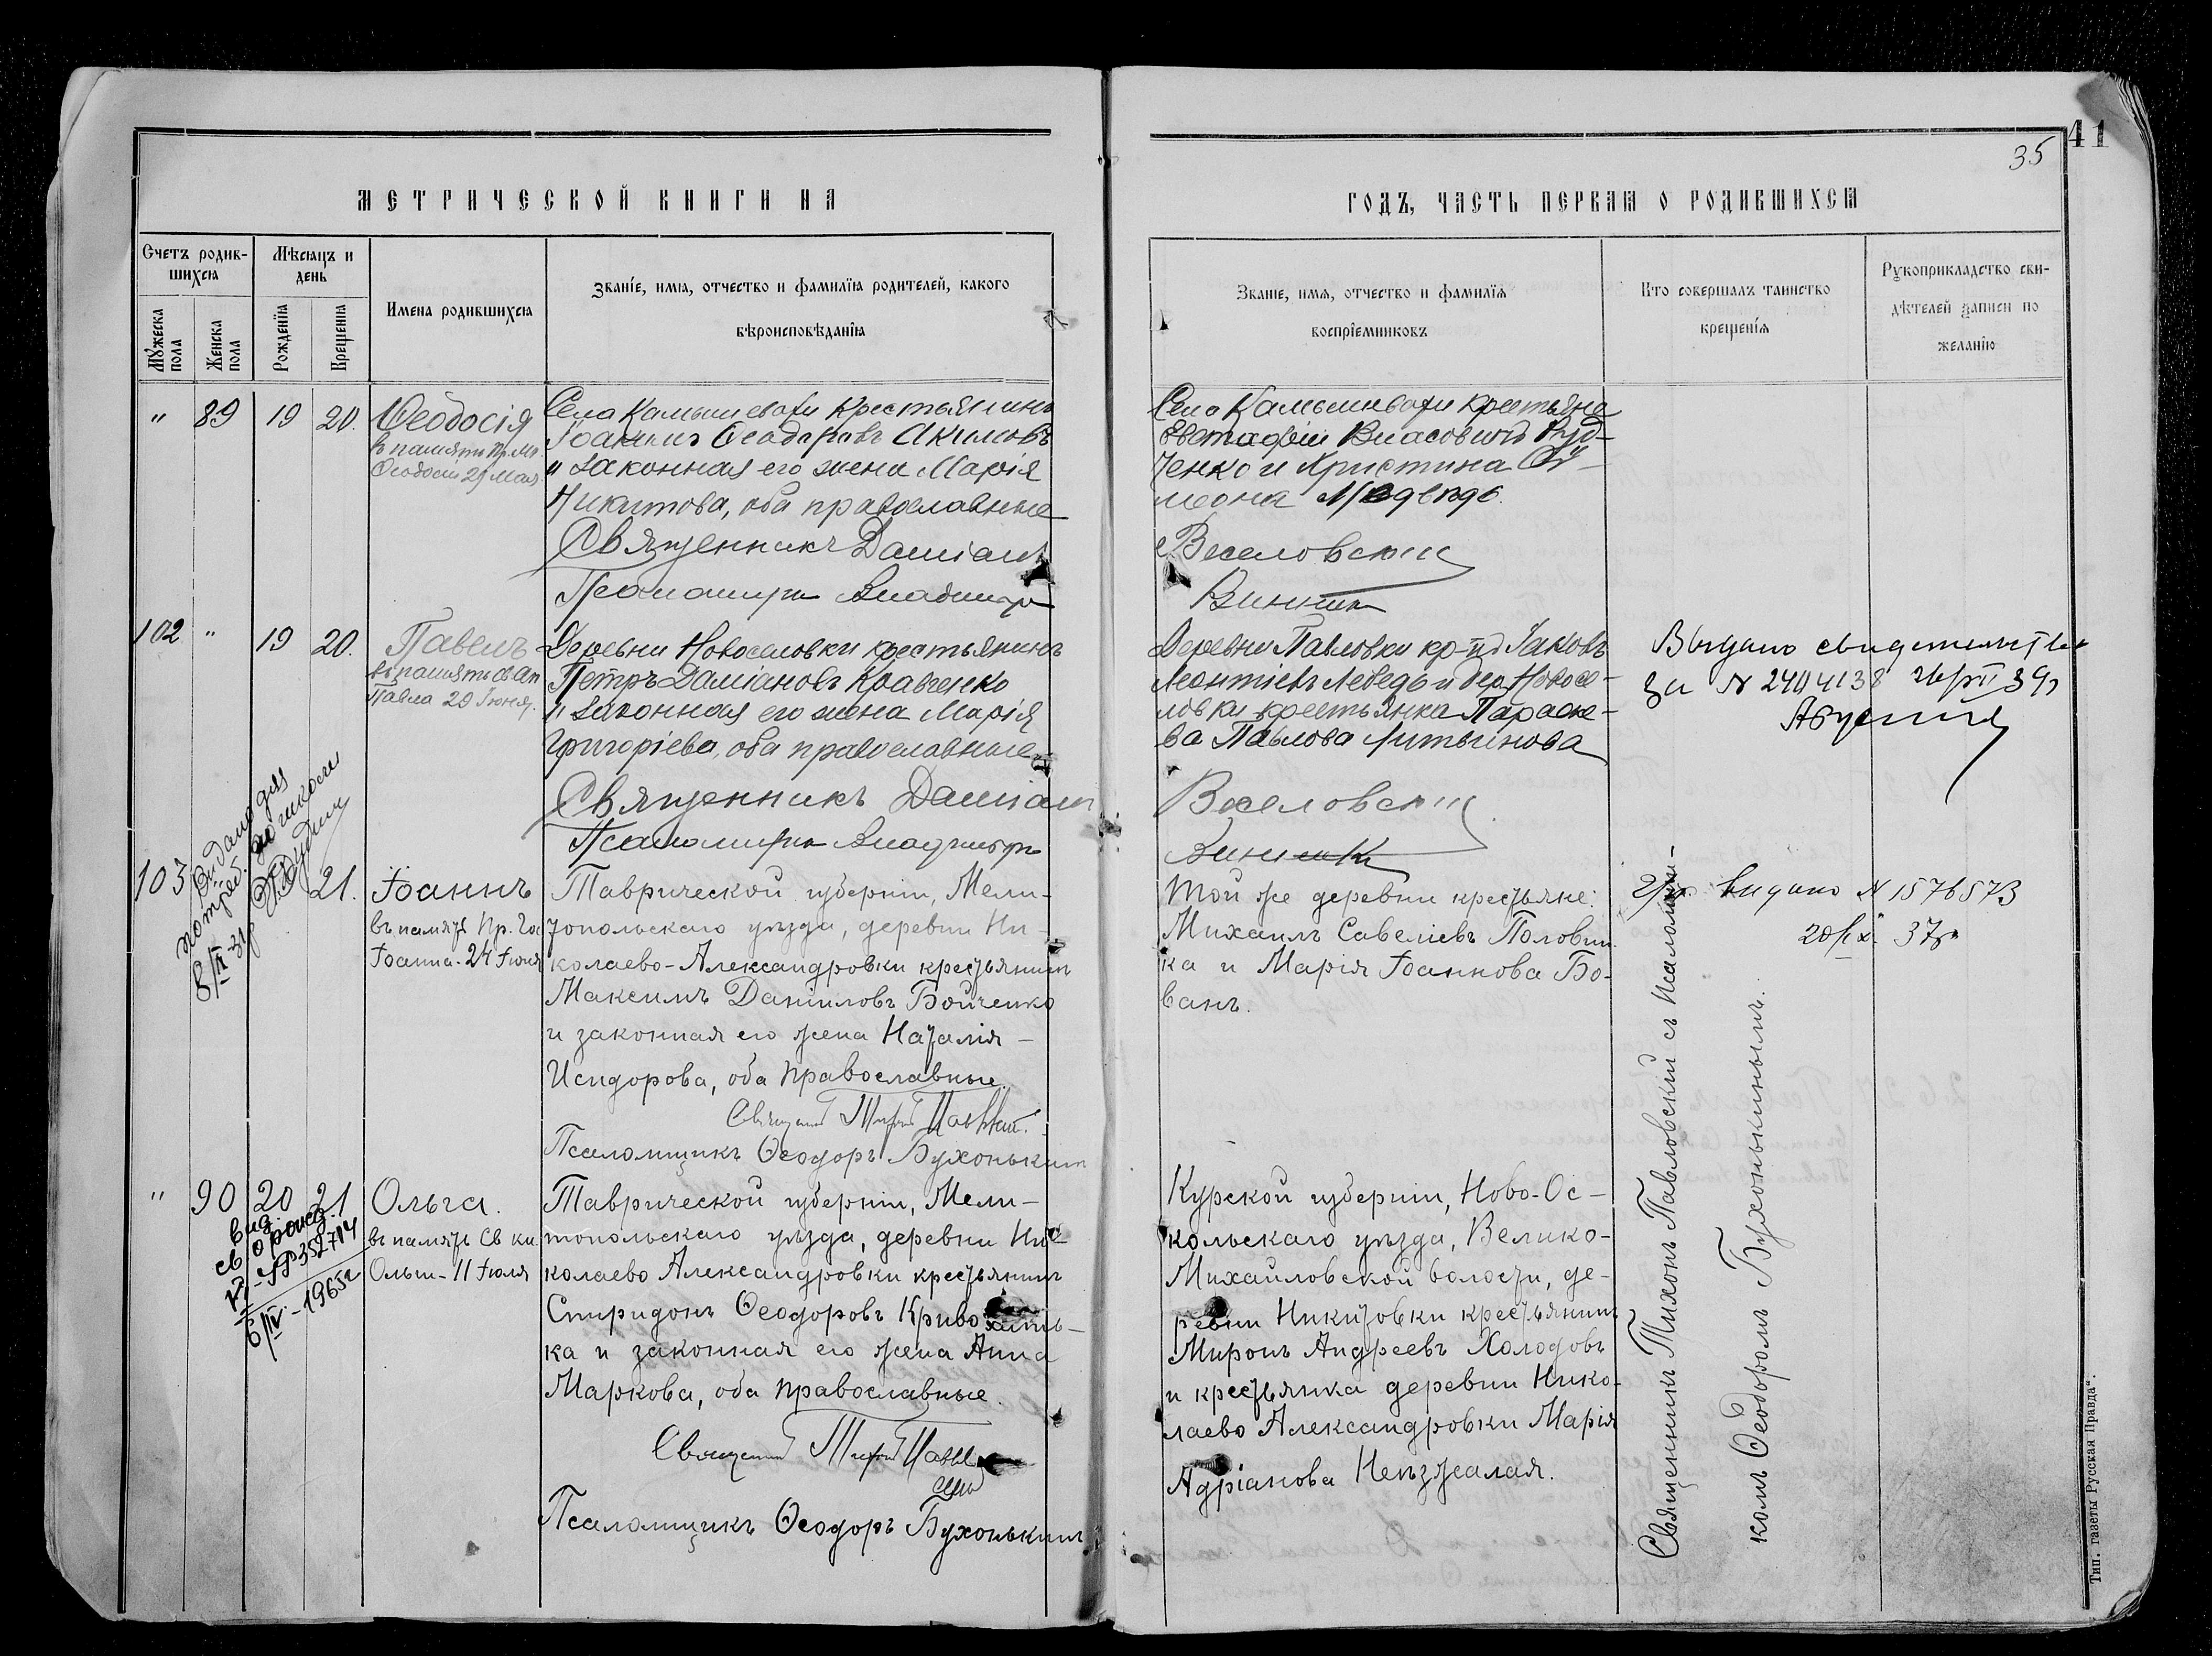 41
35
МЕТРИЧЕСКОЙ КНИГИ НА
ГОДЪ, ЧАСТЬ ПЕРВАЯ О РОДИВШИХСЯ
Счетъ родив-
шихся
Мѣсяцъ и
день
Мужеска
пола
Женска
пола
Рожденїя
Крещенїя
Имена родившихся
Званїе, имя, отчество и фамилїя родителей, какого
вѣроисповѣданїя
Званїе, имя, отчество и фамилїя
воспрїемниковъ
Кто совершалъ таинство
крещенїя
Рукоприкладство сви-
дѣтелей записи по
желанїю
" 89 19 20.
Ѳеодосія
въ память Пр. Мч.
Ѳеодосіи 29 Мая
Села Камышеваты крестьянинъ
Іоаннъ Ѳеодоровъ Акимовъ
и законная его жена Марія
Никитова, оба православные
Священникъ Даміанъ
Псаломщикъ Владиміръ
Села Камышеваты крестьяне
Евстафій Власовичъ Руд-
ченко и Христина
Веселовскій
102 " 19 20.
Павелъ
въ память св. Ап
Павла 29 Іюня.
Деревни Новоселовки крестьянинъ
Петръ Даміановъ Кравченко
и законная его жена Марія
Григоріева, оба православные
Священникъ Даміанъ
Псаломщикъ Владиміръ
Деревни Павловки кр-нъ Іаковъ
Леонтіевъ Лебедь и дер. Новосе-
ловки крестьянка Параске-
ва Павлова Литвинова
Веселовскій
Выдано свидетельство
за N 2404138
103
21.
Видано для
потреб.
8/II-31
Іоаннъ
въ память Пр. Гос
Іоанна - 24 Іюня
Таврической губерніи, Мели-
топольскаго уѣзда, деревни Ни-
колаево-Александровки крестьянинъ
Максимъ Даніиловъ Бойченко
и законная его жена Наталія -
Исидорова, оба православные.
Священникъ Тихонъ Павловскій.
Псаломщикъ Ѳеодоръ Бухонькинъ
Той же деревни крестьяне:
Михаилъ Савеліевъ Половин-
ка и Марія Іоаннова Бо-
ванъ.
видано N 1576573
37
" 90 20 21
вид.
6/IV-1965г
Ольга.
въ память Св кн.
Ольги - 11 Іюля
Таврической губерніи, Мели-
топольскаго уѣзда, деревни Ни-
колаево Александровки крестьянинъ
Спиридонъ Ѳеодоровъ Криво
ка и законная его жена Анна
Маркова, оба православные.
Священникъ Тихонъ Павлов
скій
Псаломщикъ Ѳеодоръ Бухонькинъ
Курской губерніи, Ново-Ос-
кольскаго уѣзда, Велико-
Михайловской волости, де-
ревни Никитовки крестьянинъ
Миронъ Андреевъ Холодовъ
и крестьянка деревни Нико-
лаево Александровки Марія
Адріанова Неѣзжалая.
Священникъ Тихонъ Павловскій съ Псаломщи-
комъ Ѳеодоромъ Бухонькинымъ.
Тип. газеты Русская Правда".